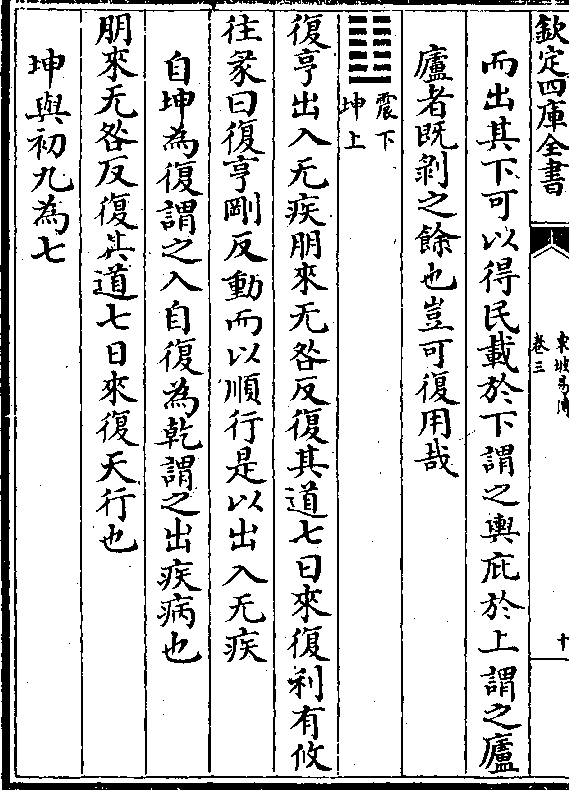 欽定四庫全書
東坡易傳
卷三
十
而出其下可以得民載於下謂之輿庇於上謂之廬
廬者既剥之餘也豈可復用哉
震下
坤上
復亨出入无疾朋來无咎反復其道七日來復利有攸
往彖曰復亨剛反動而以順行是以出入无疾
自坤為復謂之入自復為乾謂之出疾病也
朋來无咎反復其道七日來復天行也
坤與初九為七